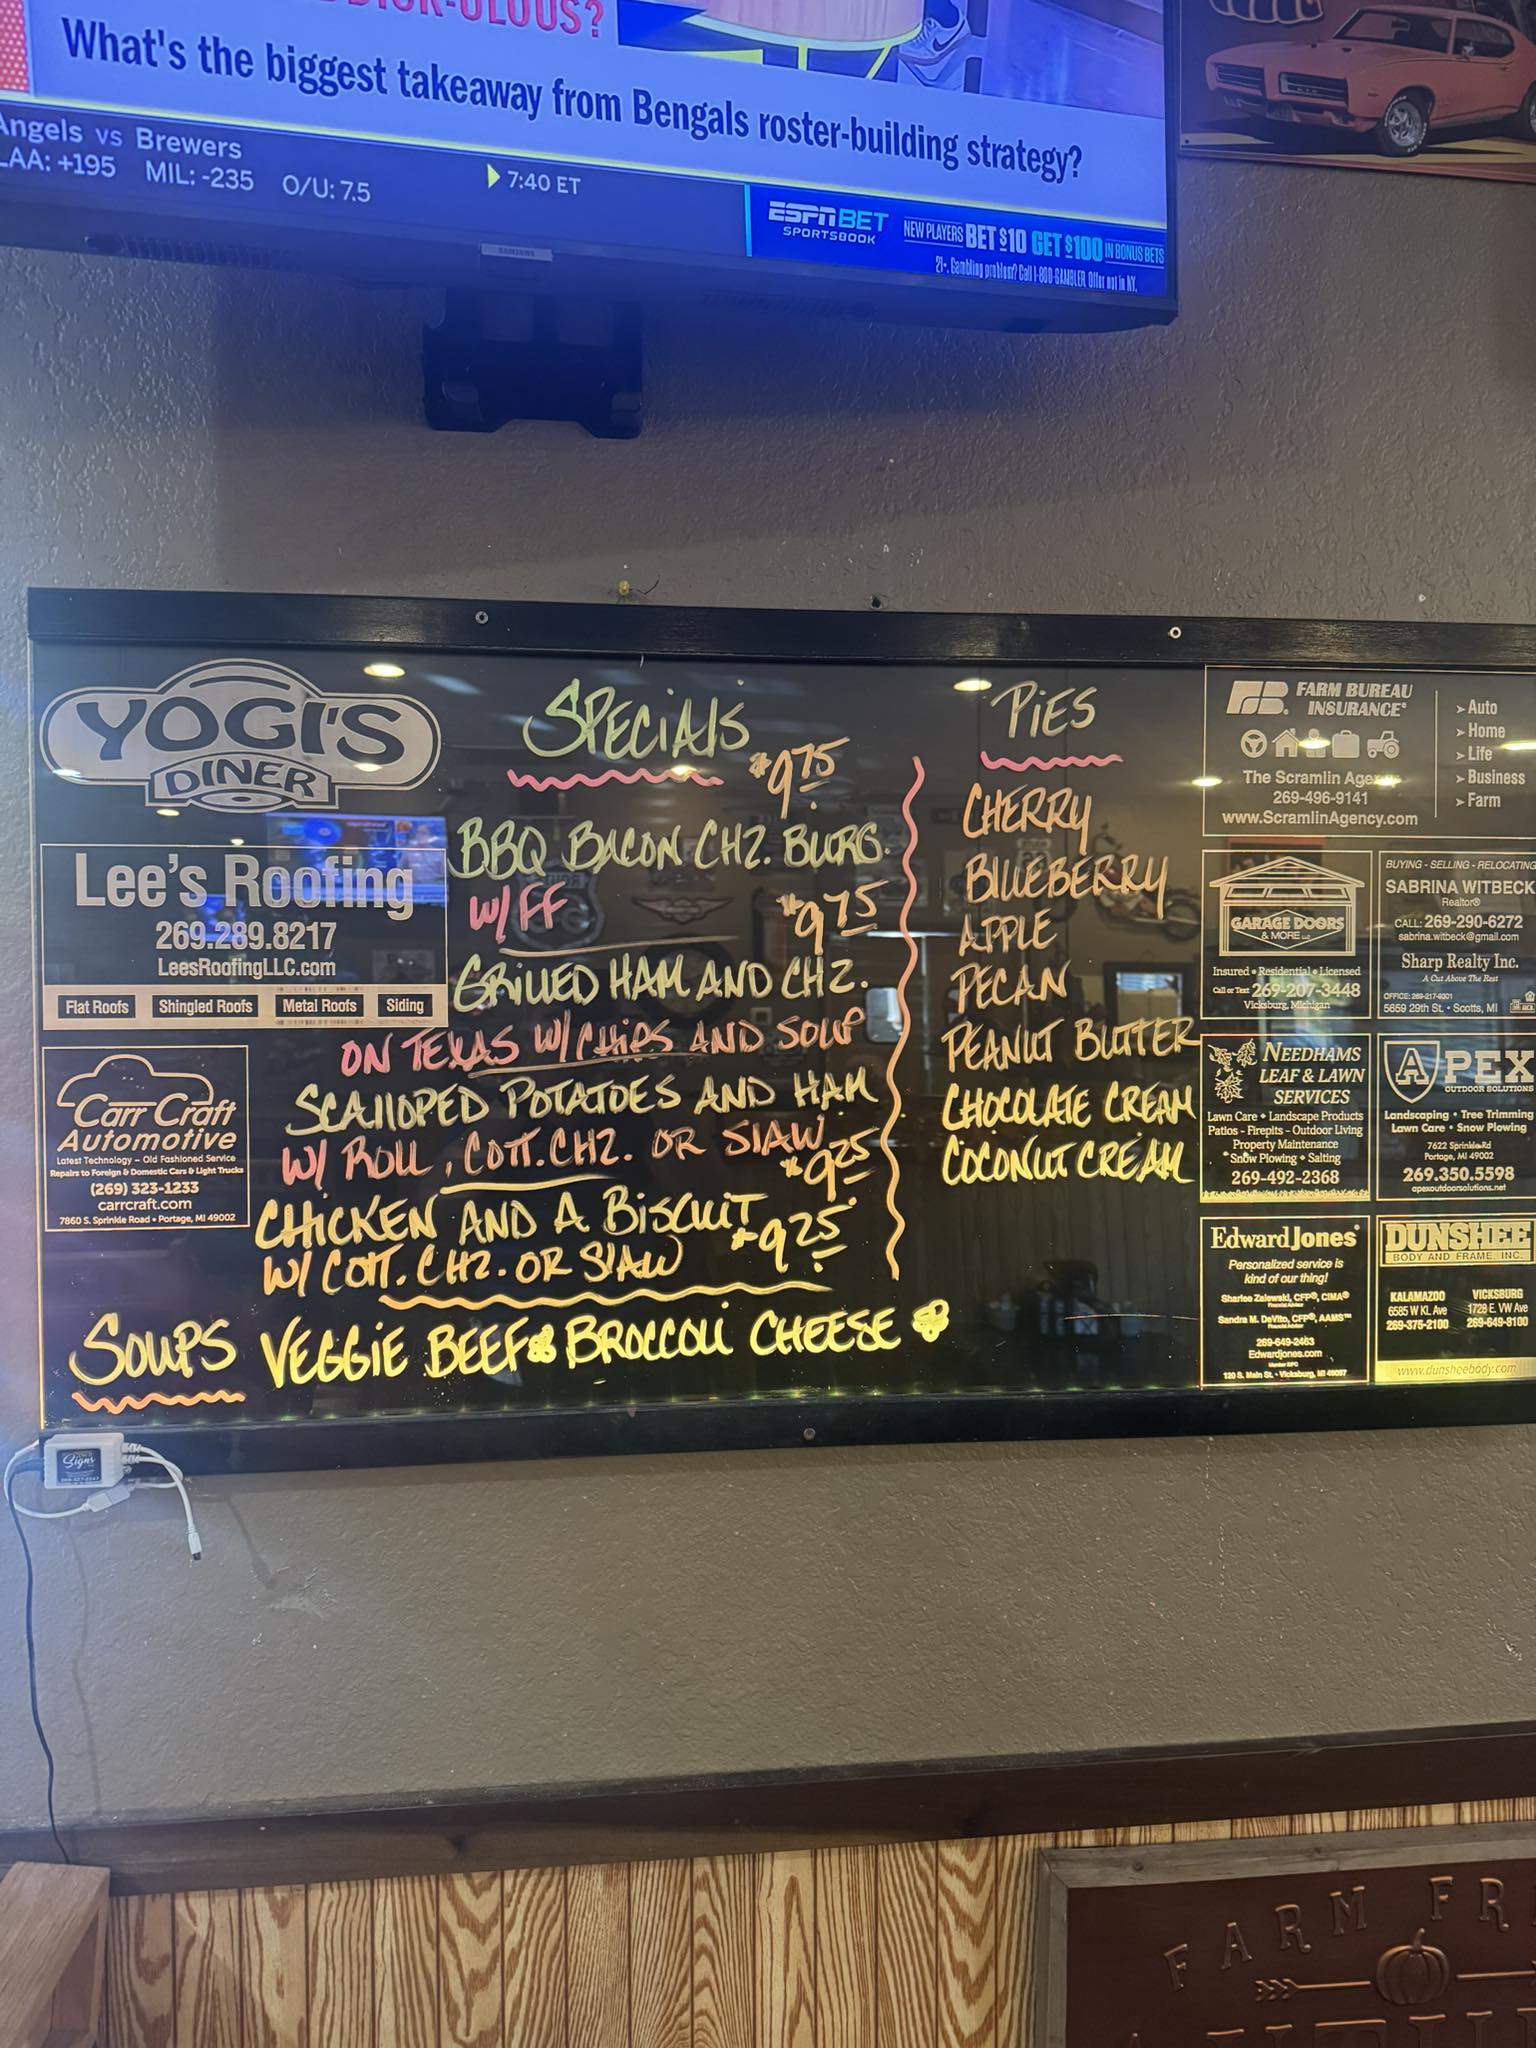 What's the biggest takeaway from Bengals roster-building strategy?
Angels vs Brewers
LAA: +195 MIL: -235 O/U: 7.5
7:40 ET
ESPN BET
SPORTSBOOK
NEW PLAYERS BET $10 GET $100 IN BONUS BETS
21+. Gambling problem? Call 1-800-GAMBLER. Offer not in NY.
SAMSUNG
YOGI'S
DINER
Lee's Roofing
269.289.8217
LeesRoofingLLC.com
Flat Roofs Shingled Roofs Metal Roofs Siding
Carr Craft
Automotive
Latest Technology - Old Fashioned Service
Repairs to Foreign & Domestic Cars & Light Trucks
(269) 323-1233
carrcraft.com
7860 S. Sprinkle Road • Portage, MI 49002
SPECIALS
$9.75
BBQ BACON CHZ. BURG.
W/ FF
$9.75
GRILLED HAM AND CHZ.
ON TEXAS W/ CHIPS AND SOUP
SCALLOPED POTATOES AND HAM
W/ ROLL, COTT. CHZ. OR SLAW
$9.25
CHICKEN AND A BISCUIT
W/ COTT. CHZ. OR SLAW
$9.25
SOUPS VEGGIE BEEF BROCCOLI CHEESE
PIES
CHERRY
BLUEBERRY
APPLE
PECAN
PEANUT BUTTER
CHOCOLATE CREAM
COCONUT CREAM
FB FARM BUREAU
INSURANCE®
The Scramlin Agency
269-496-9141
www.ScramlinAgency.com
➤ Auto
➤ Home
➤ Life
➤ Business
➤ Farm
GARAGE DOORS
& MORE LLC
Insured • Residential • Licensed
Call or Text 269-207-3448
Vicksburg, Michigan
BUYING - SELLING - RELOCATING
SABRINA WITBECK
Realtor®
CALL: 269-290-6272
sabrina.witbeck@gmail.com
Sharp Realty Inc.
A Cut Above The Rest
OFFICE: 269-217-9301
5659 29th St. • Scotts, MI
NEEDHAMS
LEAF & LAWN
SERVICES
Lawn Care • Landscape Products
Patios - Firepits - Outdoor Living
Property Maintenance
Snow Plowing • Salting
269-492-2368
APEX
OUTDOOR SOLUTIONS
Landscaping • Tree Trimming
Lawn Care • Snow Plowing
7622 Sprinkle Rd
Portage, MI 49002
269.350.5598
apexoutdoorsolutions.net
Edward Jones®
Personalized service is
kind of our thing!
Sharlee Zalewski, CFP®, CIMA®
Financial Advisor
Sandra M. DeVito, CFP®, AAMS™
Financial Advisor
269-649-2463
Edwardjones.com
Member SIPC
120 S. Main St. • Vicksburg, MI 49097
DUNSHEE
BODY AND FRAME, INC.
KALAMAZOO
6585 W KL Ave
269-375-2100
VICKSBURG
1728 E. VW Ave
269-649-8100
www.dunsheebody.com
Signs
FARM FR